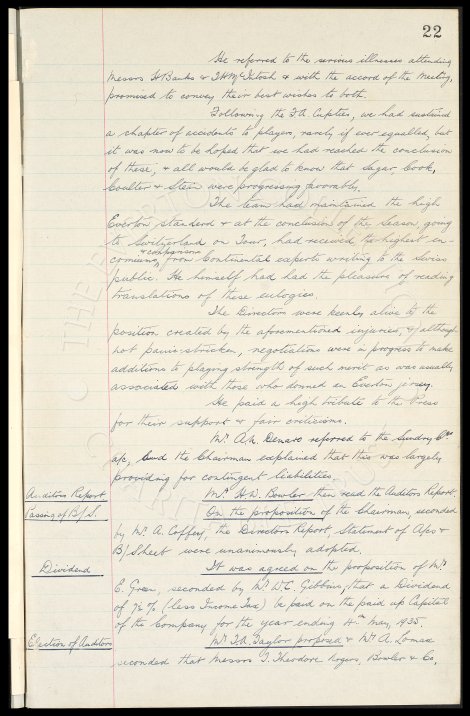 22
He referred to the serious illnesses attending
Messrs H Banks & J H McIntosh & with the accord of the Meeting,
promised to convey their best wishes to both.
Following the F.A. Cupties, we had sustained
a chapter of accidents to players, rarely if ever equalled, but
it was now to be hoped that we had reached the conclusion
of these, & all would be glad to know that Sagar Cook,
Coulter & Stein were progressing favorably.
The team had maintained the high
Everton standard & at the conclusion of the Season, going
to Switzerland on Tour, had received the highest en-
& comparisons
comiums, from Continental experts writing to the Swiss
public. He himself had had the pleasure of reading
translations of these eulogies.
The Directors were keenly alive to the
position created by the aforementioned injuries, & although
not panic-stricken, negotiations were in progress to make
additions to playing strength of such merit as was usually
associated with those who donned an Everton jersey.
He paid a high tribute to the Press
for their support & fair criticisms.
Mr A.W. Denaro referred to the Sundry Crs
a/c, and the Chairman explained that this was largely
providing for contingent liabilities.
Auditors Report
Mr H.W. Bowler then read the Auditors Report.
Passing of B/S.
On the proposition of the Chairman, seconded
by Mr A. Coffey, the Directors Report, Statement of A/cs &
B/Sheet were unanimously adopted.
Dividend
It was agreed on the proposition of Mr
C. Green, seconded by Mr W.C. Gibbins, that a Dividend
of 7½% (less Income Tax) be paid on the paid up Capital
of the Company for the year ending 4th May, 1935.
Election of Auditors
Mr F.A. Taylor proposed & Mr A. Lomax
seconded that Messrs T. Theodore Rogers, Bowler & Co,